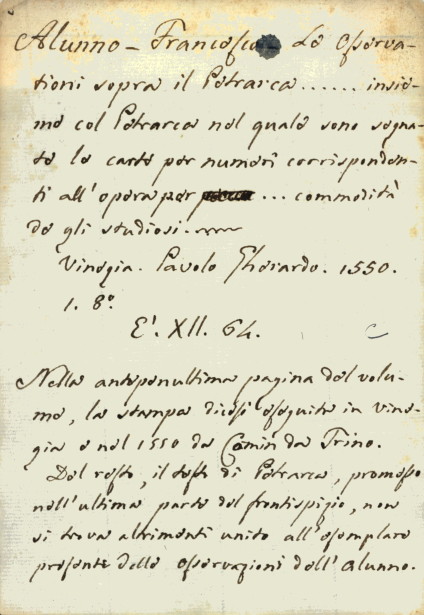 Alunno - Francesco - Le Osserva-
tioni sopra il Petrarca ...... insie-
me col Petrarca nel quale sono segna-
te le carte per numeri corrisponden-
ti all' opera per ... commodità
de gli studiosi.
Vinegia. Pavolo Gherardo. 1550.
1. 8º.
E'. XII. 64.
Nella antepenultima pagina del volu-
me, la stampa dicesi eseguita in Vine-
gia e nel 1550 da Comin da Trino.
Del resto, il testo di Petrarca, promesso
nell'ultima parte del frontispizio, non
si trova altrimenti unito all'esemplare
presente delle Osservazioni dell'Alunno.